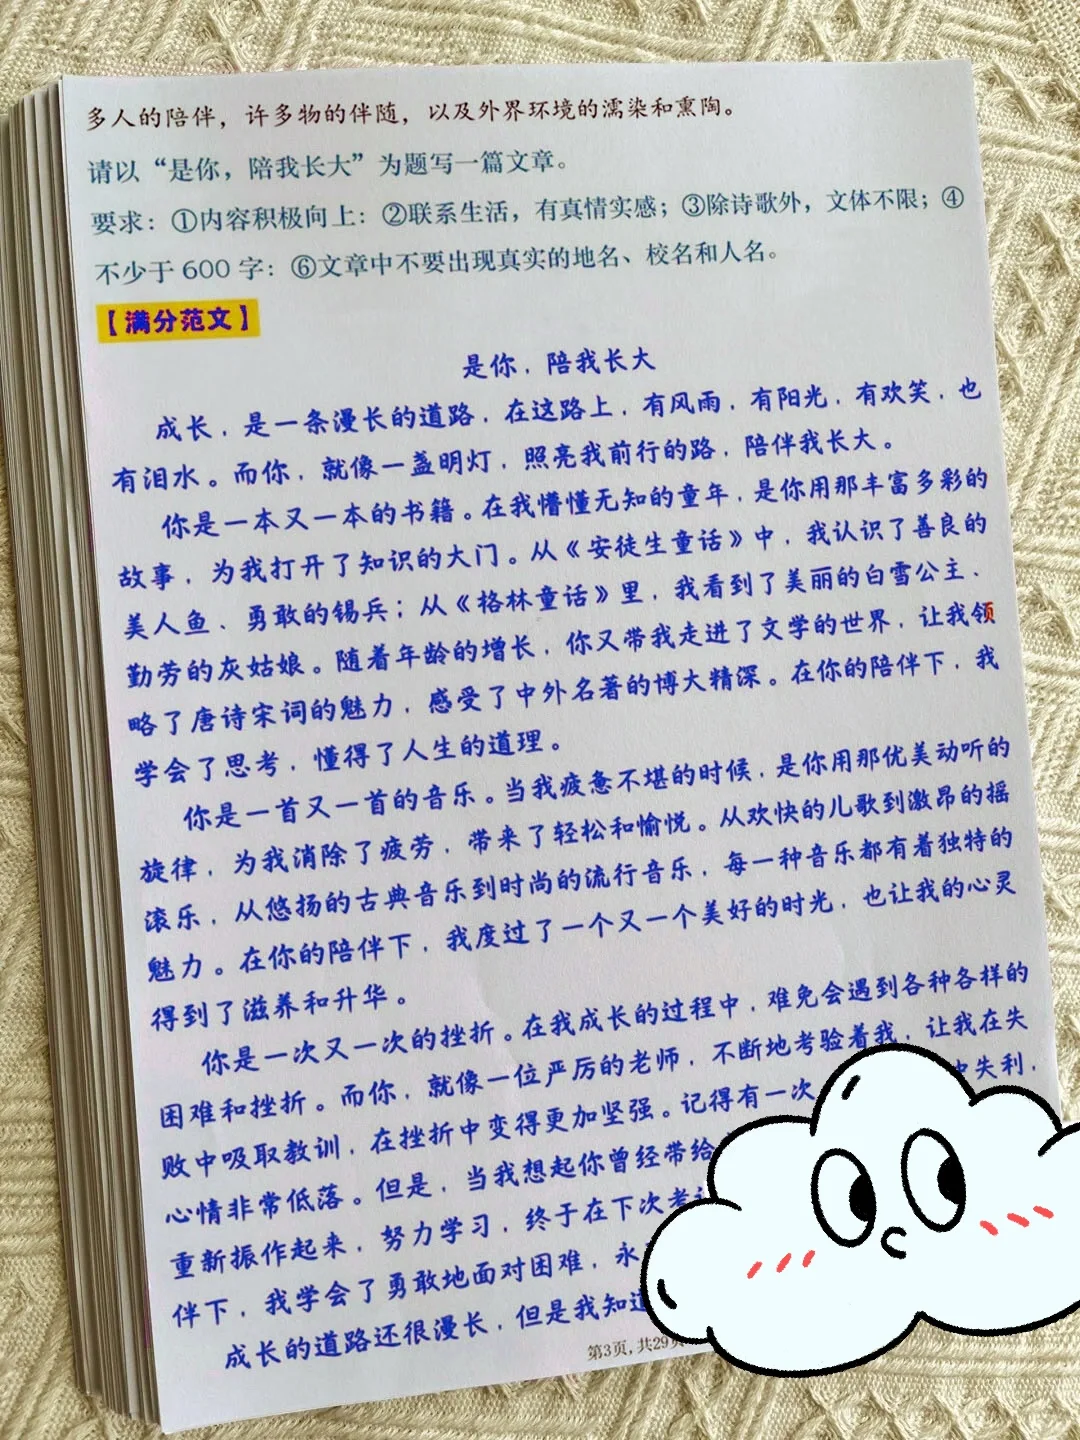 多人的陪伴，许多物的伴随，以及外界环境的濡染和熏陶。
请以“是你，陪我长大”为题写一篇文章。
要求：①内容积极向上：②联系生活，有真情实感；③除诗歌外，文体不限；④
不少于 600 字：⑥文章中不要出现真实的地名、校名和人名。
【满分范文】
是你，陪我长大
成长，是一条漫长的道路，在这路上，有风雨，有阳光，有欢笑，也
有泪水。而你，就像一盏明灯，照亮我前行的路，陪伴我长大。
你是一本又一本的书籍。在我懵懂无知的童年，是你用那丰富多彩的
故事，为我打开了知识的大门。从《安徒生童话》中，我认识了善良的
美人鱼、勇敢的锡兵；从《格林童话》里，我看到了美丽的白雪公主、
勤劳的灰姑娘。随着年龄的增长，你又带我走进了文学的世界，让我领
略了唐诗宋词的魅力，感受了中外名著的博大精深。在你的陪伴下，我
学会了思考，懂得了人生的道理。
你是一首又一首的音乐。当我疲惫不堪的时候，是你用那优美动听的
旋律，为我消除了疲劳，带来了轻松和愉悦。从欢快的儿歌到激昂的摇
滚乐，从悠扬的古典音乐到时尚的流行音乐，每一种音乐都有着独特的
魅力。在你的陪伴下，我度过了一个又一个美好的时光，也让我的心灵
得到了滋养和升华。
你是一次又一次的挫折。在我成长的过程中，难免会遇到各种各样的
困难和挫折。而你，就像一位严厉的老师，不断地考验着我，让我在失
败中吸取教训，在挫折中变得更加坚强。记得有一次 中失利，
心情非常低落。但是，当我想起你曾经带给
重新振作起来，努力学习，终于在下次考
伴下，我学会了勇敢地面对困难，永
成长的道路还很漫长，但是我知道
第3页，共29页